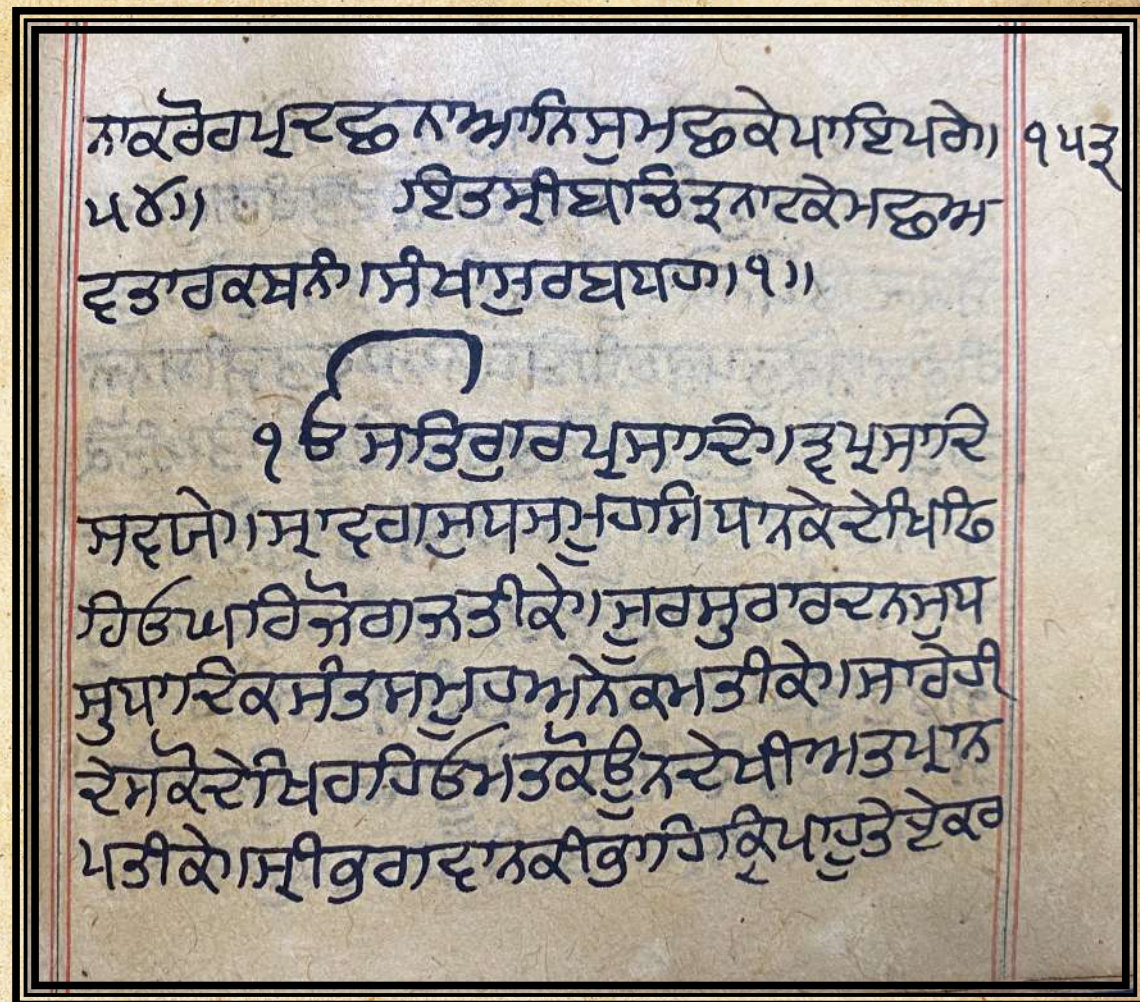 ਨਾਕਰੋਰਪ੍ਰਦਛਨਾਆਨਿਸੁਮਛਕੇਪਾਇਪਰੇ॥ ੧੫੩
੫੪॥ ਇਤਸ੍ਰੀਬਚਿਤ੍ਰਨਾਟਕੇਮਛਅ
ਵਤਾਰਕਥਨੰ।ਸੰਖਾਸੁਰਬਧਹ।੧॥
੧ੳ ਸਤਿਗੁਰਪ੍ਰਸਾਦਿ।ਤ੍ਵਪ੍ਰਸਾਦਿ
ਸਵਯੇ।ਸ੍ਰਾਵਗਸੁਧਸਮੂਹਸਿਧਾਨਕੇਦੇਖਿਫਿ
ਰਿਓਘਰਿਜੋਗਜਤੀਕੇ।ਸੂਰਸੁਰਾਰਦਨਸੁਧ
ਸੁਧਾਦਿਕਸੰਤਸਮੂਹਅਨੇਕਮਤੀਕੇ।ਸਾਰੇਹੀ
ਦੇਸਕੋਦੇਖਿਰਹਿਓਮਤਕੋਊਨਦੇਖੀਅਤਪ੍ਰਾਨ
ਪਤੀਕੇ।ਸ੍ਰੀਭਗਵਾਨਕੀਭਾਇਕ੍ਰਿਪਾਹੂਤੇਏਕਰ